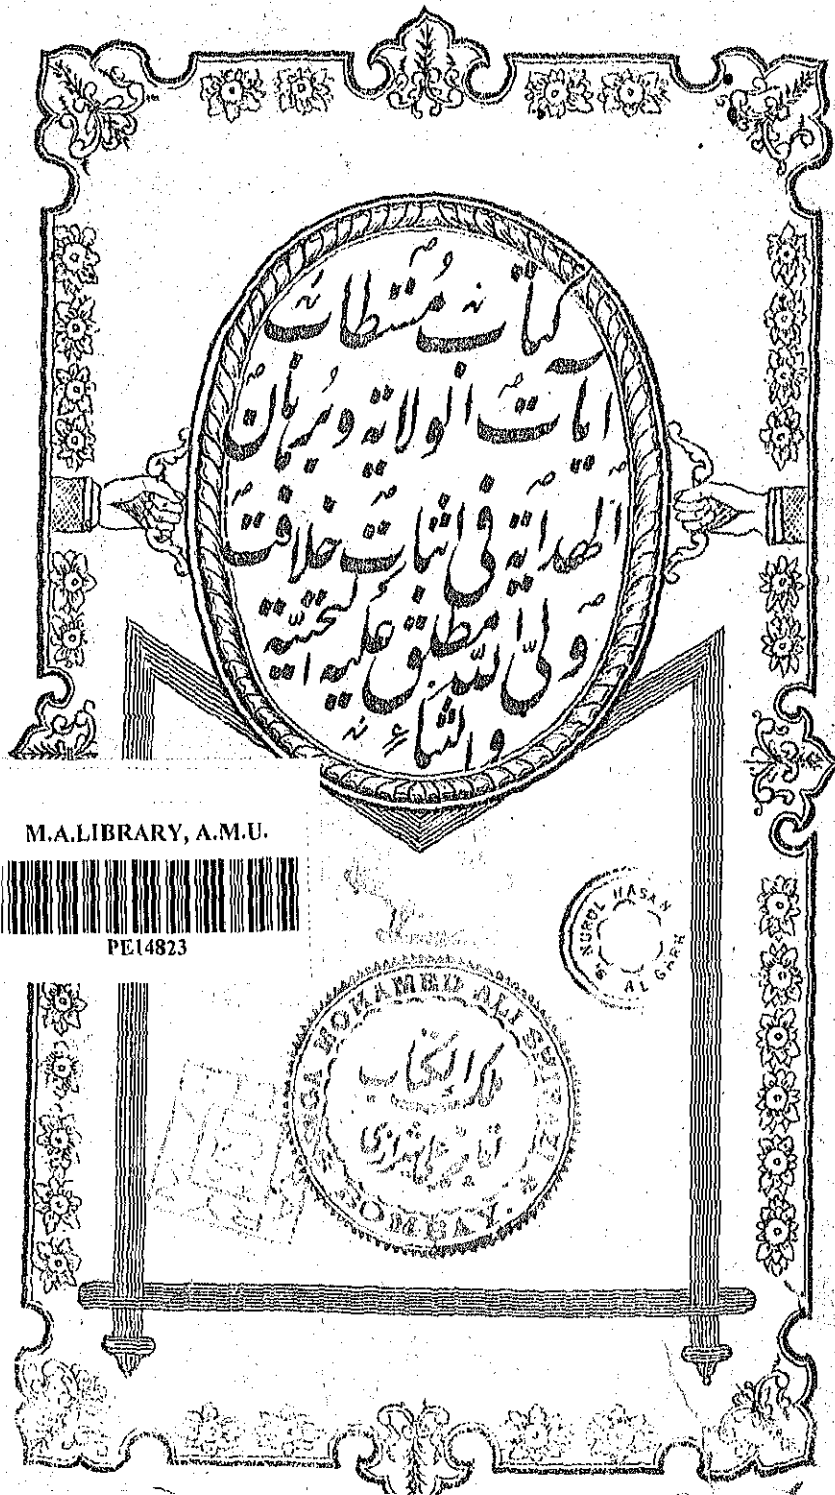 کتاب مستطاب
آیات الولایة وبرهان
الهدایة فی اثبات خلافت
ولی الله مطلق علیه التحیّة
والثناء
M.A.LIBRARY, A.M.U.
PE14823
NURUL HASAN
ALGARH
AGA MOHAMED ALI SHIRAZI * BOMBAY
ملک الکتاب